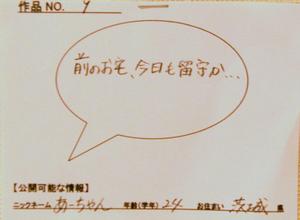 作品NO. 9
前のお宅、今日も留守か…
【公開可能な情報】
ニックネーム あーちゃん 年齢(学年) 24 お住まい 茨城 県